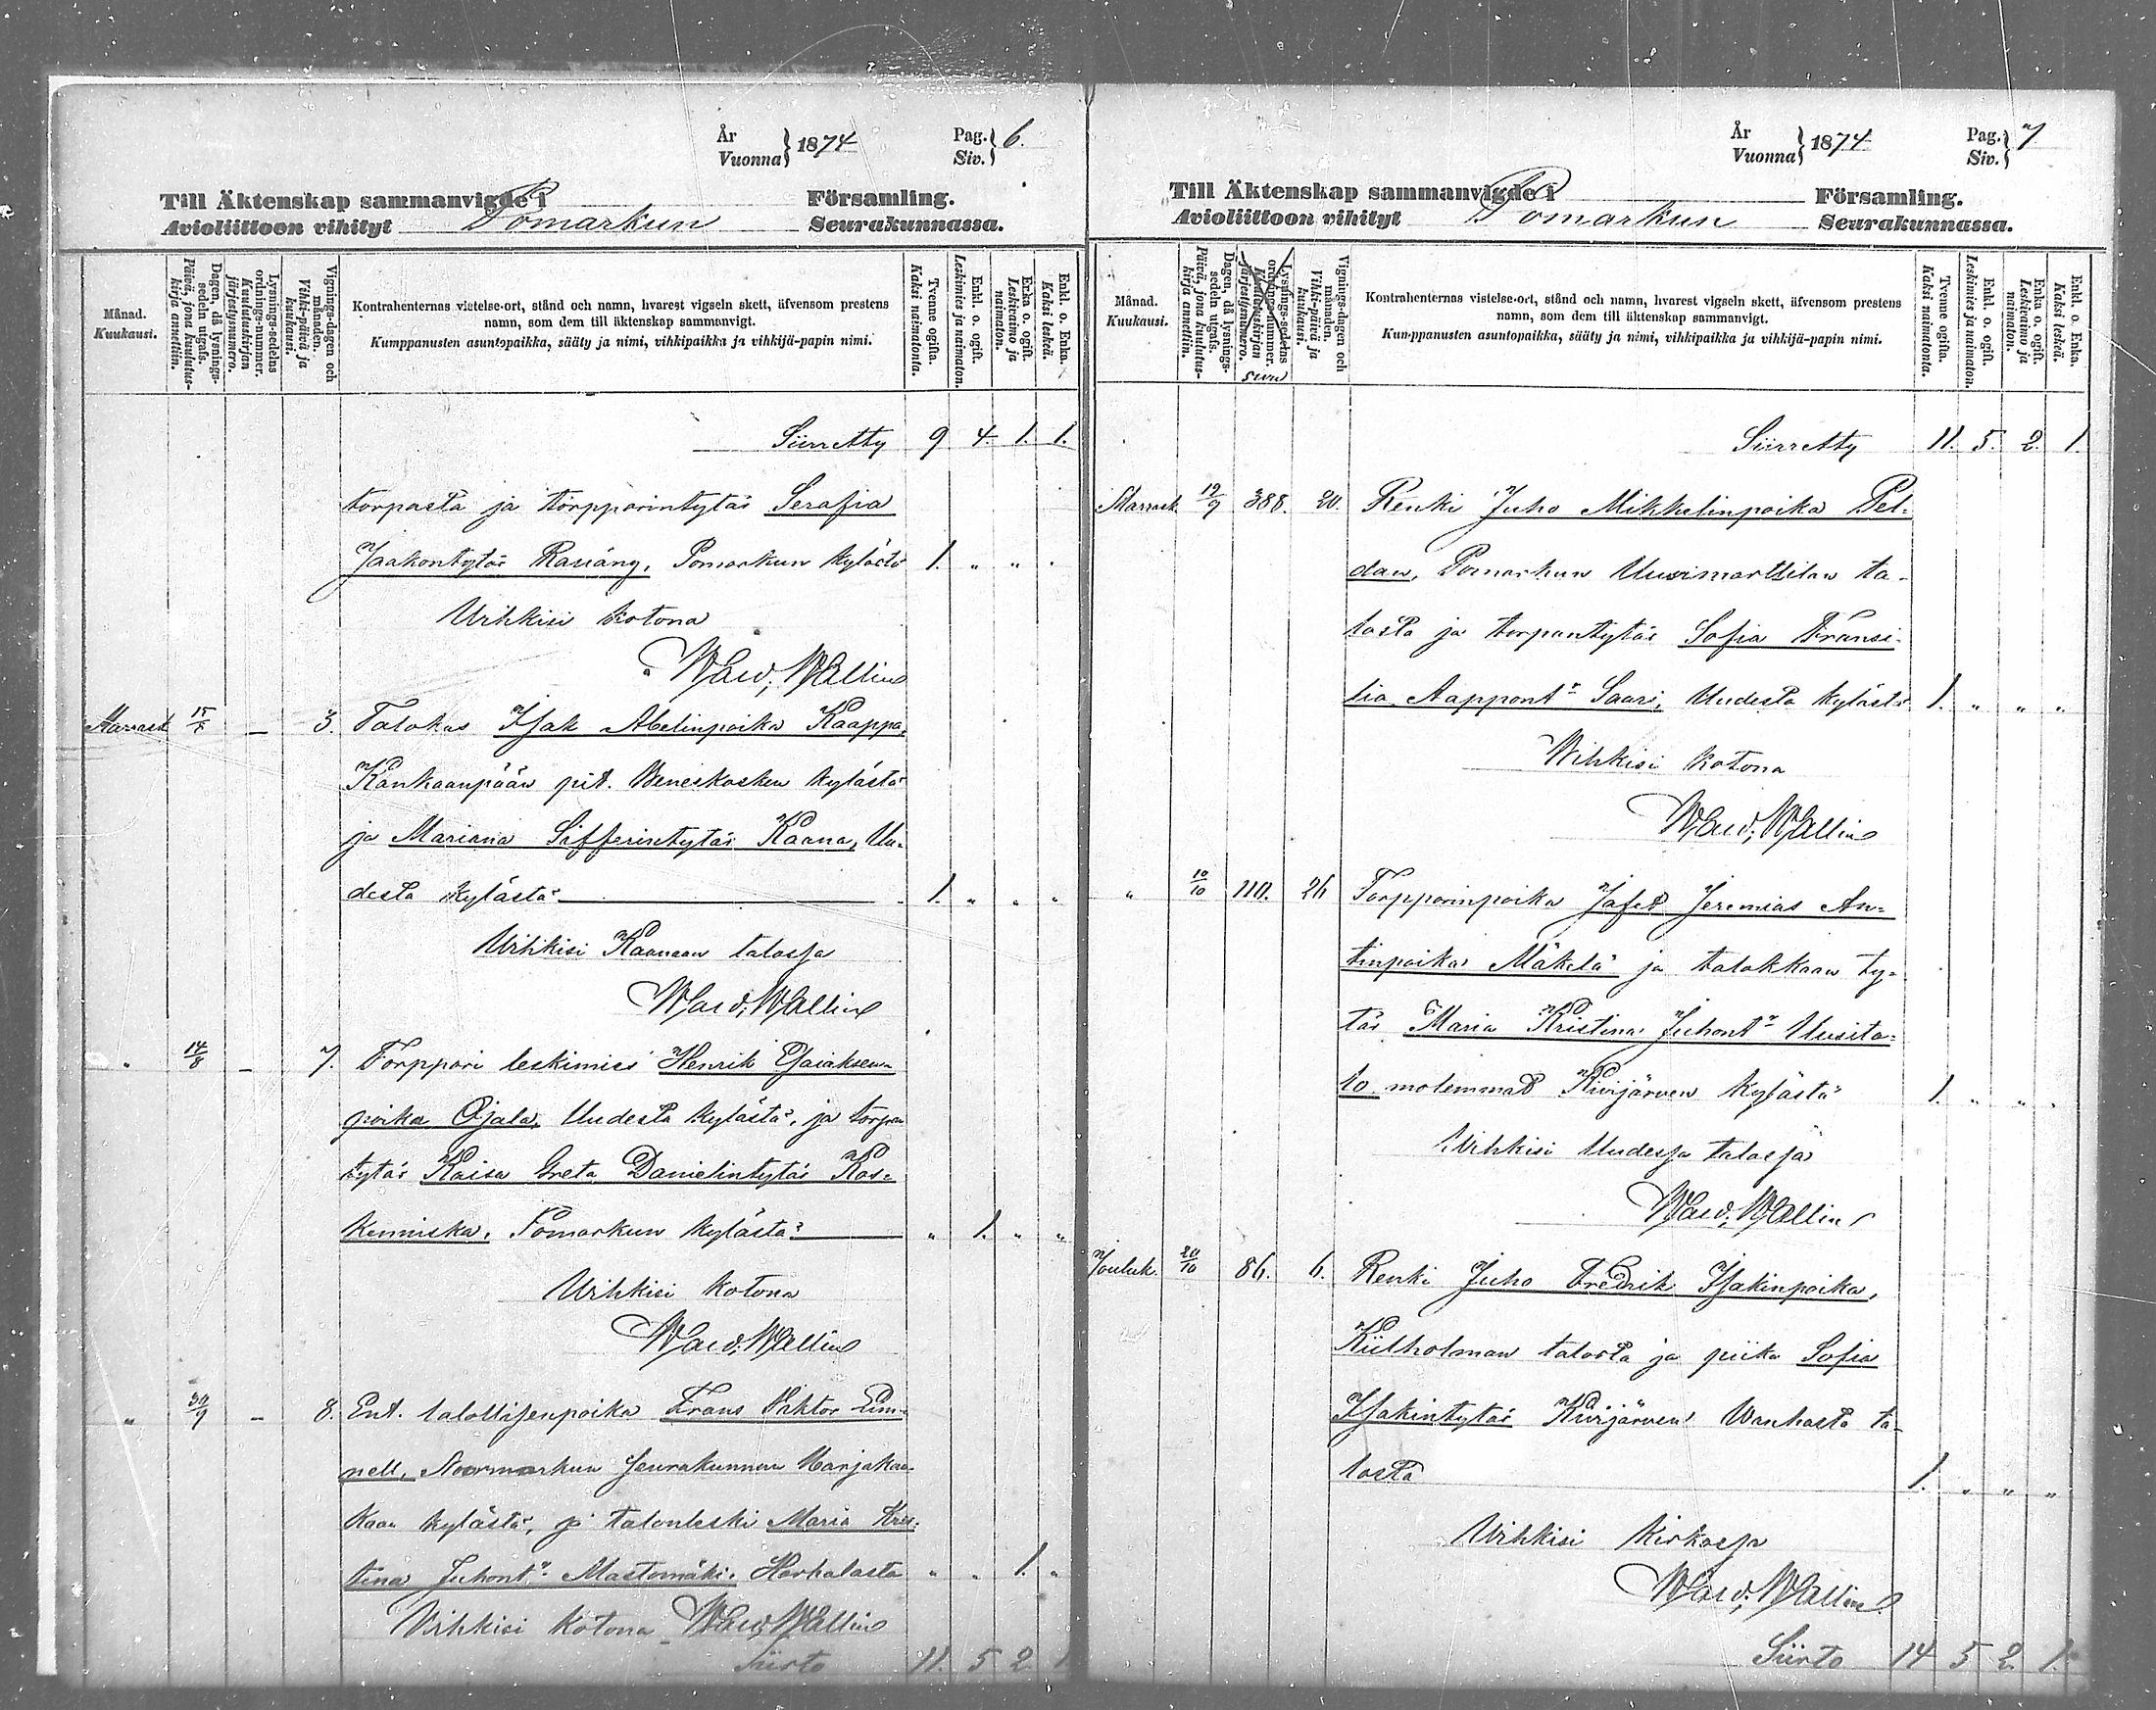 År
Vuonna } 1874
Pag.
Siv. } 6.
Till Äktenskap sammanvigde i Församling.
Avioliittoon vihityt Pomarkun Seurakunnassa.
Månad.
Kuukausi.
Dagen, då lysnings-
sedeln utgafs.
Päivä, jona kuulutus-
kirja annettiin.
Lysnings-sedelns
ordnings-nummer.
Kuulutuskirjan
järjestysnumero.
Vignings-dagen och
månaden.
Vihki-päivä ja
kuukausi.
Kontrahenternas vistelse-ort, stånd och namn, hvarest vigseln skett, äfvensom prestens
namn, som dem till äktenskap sammanvigt.
Kumppanusten asuntopaikka, sääty ja nimi, vihkipaikka ja vihkijä-papin nimi.
Tvenne ogifta.
Kaksi naimatonta.
Enkl. o. ogift.
Leskimies ja naimaton.
Enka o. ogift.
Leskivaimo ja
naimaton.
Enkl. o. Enka.
Kaksi leskeä.
Siirretty 9 4. 1. 1.
torpasta ja torpparintytär Serafia
Jaakontytär Pomarkun kylästä 1. " " "
Wihkisi kotona
Wallin
Marrask 3. Talokas Isak Abelinpoika Kaappa,
Kankaanpään pit. Weneskosken kylästä
ja Mariana Sifferintytär Kaana, Uu-
desta kylästä 1. " " "
Wihkisi Kaanaan talossa
Wallin
" 14/8 – 7. Torppari leskimies Henrik Esaiaksen-
poika Ojala, Uudesta kylästä, ja torpan
tytär Kaisa Greta Danielintytär Kos-
kenniska, Pomarkun kylästä " 1. " "
Wihkisi kotona
Wallin
" 30/9 – 8. Ent. talollisenpoika Frans Viktor
nell, Noormarkun seurakunnan
kaan kylästä, ja talonleski Maria Kris-
tina Juhont:r Mastomäki, Harhalasta " " 1. "
Wihkisi kotona Wallin
Siirto 11. 5 2 1
År
Vuonna } 1874
Pag.
Siv. } 7
Till Äktenskap sammanvigde i Församling.
Avioliittoon vihityt Pomarkun Seurakunnassa.
Månad.
Kuukausi.
Dagen, då lysnings-
sedeln utgafs.
Päivä, jona kuulutus-
kirja annettiin.
Lysnings-sedelns
ordnings-nummer.
Kuulutuskirjan
järjestysnumero.
Vignings-dagen och
månaden.
Vihki-päivä ja
kuukausi.
Kontrahenternas vistelse-ort, stånd och namn, hvarest vigseln skett, äfvensom prestens
namn, som dem till äktenskap sammanvigt.
Kumppanusten asuntopaikka, sääty ja nimi, vihkipaikka ja vihkijä-papin nimi.
Tvenne ogifta.
Kaksi naimatonta.
Enkl. o. ogift.
Leskimies ja naimaton.
Enka o. ogift.
Leskivaimo ja
naimaton.
Enkl. o. Enka.
Kaksi leskeä.
Siirretty 11. 5. 2. 1.
Marrask. 12/9 388. 20. Renki Juho Mikkelinpoika Pel-
dan, Pomarkun Uusimarttilan ta-
losta ja torpantytär Sofia Fransi-
lia Aappont:r Saari, Uudesta kylästä 1. " " "
Wihkisi kotona
Wallin
" 10/10 110. 26 Torpparinpoika Jafet Jeremias An-
tinpoika Mäkelä ja talokkaan ty-
tär Maria Kristina Juhont:r Uusita-
lo molemmat Kivijärven kylästä 1. " " "
Wihkisi Uudessa talossa
Wallin
Jouluk. 20/10 86. 6. Renki Juho Fredrik Isakinpoika,
Kiilholman talosta ja piika Sofia
Isakintytär Kivijärven Wanhasta ta-
losta 1. " " "
Wihkisi Kirkossa
Wallin
Siirto 14 5 2 1.